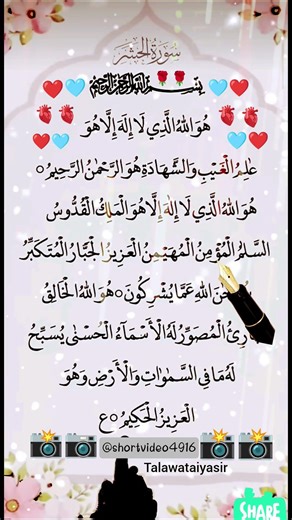 سورة الحشر
بسم الله الرحمن الرحيم
هُوَ اللهُ الَّذِي لَا إِلٰهَ إِلَّا هُوَ
عٰلِمُ الْغَيْبِ وَالشَّهَادَةِ هُوَ الرَّحْمٰنُ الرَّحِيْمُ
هُوَ اللهُ الَّذِي لَا إِلٰهَ إِلَّا هُوَ الْمَلِكُ الْقُدُّوسُ
السَّلٰمُ الْمُؤْمِنُ الْمُهَيْمِنُ الْعَزِيزُ الْجَبَّارُ الْمُتَكَبِّرُ
اللهِ عَمَّا يُشْرِكُونَ هُوَ اللهُ الْخَالِقُ
الْمُصَوِّرُ لَهُ الْأَسْمَاءُ الْحُسْنٰى يُسَبِّحُ
لَهُ مَا فِي السَّمٰوٰتِ وَالْأَرْضِ وَهُوَ
الْعَزِيزُ الْحَكِيمُ ع
@shortvideo4916
Talawataiyasir
SHARE